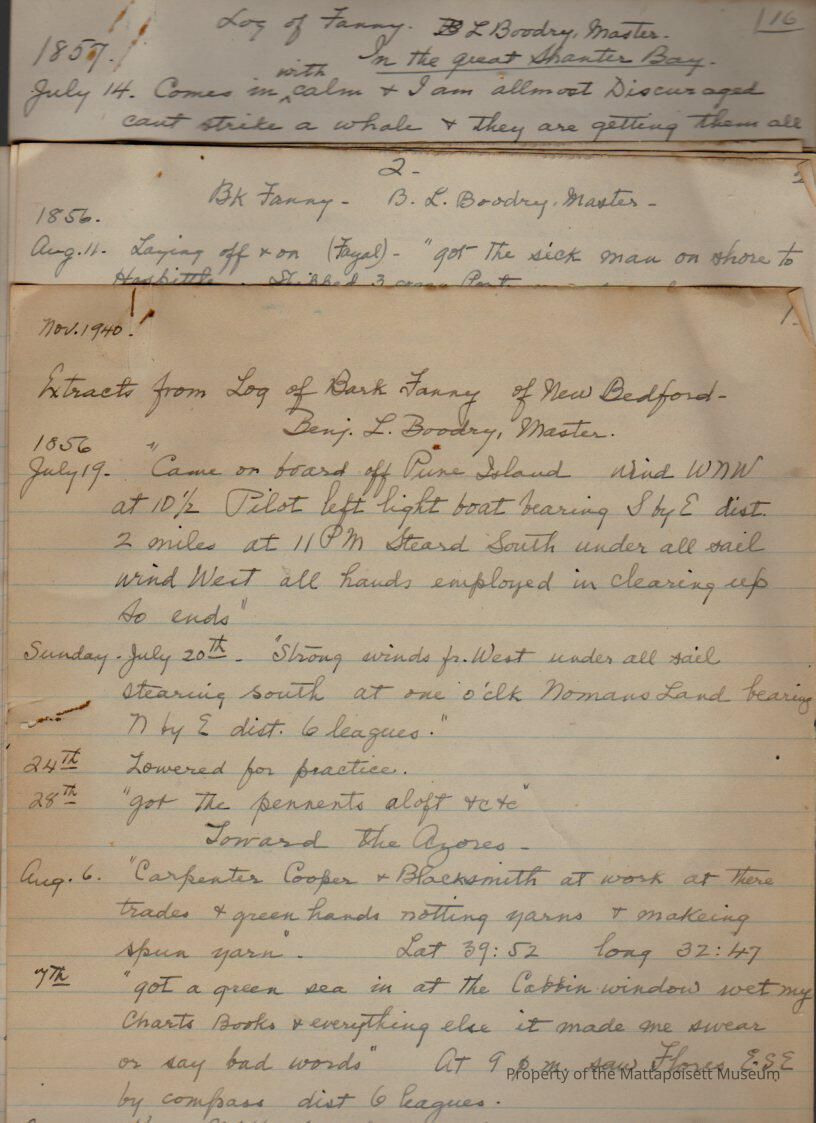 Log of Fanny. B L Boodry, Master. 116
1857. In the great Shanter Bay.
July 14. Comes in with calm & I am allmost Discuraged
cant strike a whale & they are getting them all
2-
Bk Fanny - B. L. Boodry, Master -
1856.
Aug. 11. Laying off & on (Fayal) - "got the sick man on shore to
Hospittle. Shipped 3
Nov. 1940. 1.
Extracts from Log of Bark Fanny of New Bedford -
Benj. L. Boodry, Master.
1856
July 19. "Came on board off Pune Island wind WNW
at 10½ Pilot left light boat bearing S by E dist.
2 miles at 11 PM Steard South under all sail
wind West all hands employed in clearing up
so ends"
Sunday - July 20th - "Strong winds fr. West under all sail
stearing south at one o'clk Nomans Land bearing
N by E dist. 6 leagues."
24th Lowered for practice.
28th "got the pennents aloft &c &c"
Toward the Azores -
Aug. 6. "Carpenter Cooper & Blacksmith at work at there
trades & green hands notting yarns & makeing
spun yarn". Lat 39:52 long 32:47
7th "got a green sea in at the Cabbin window wet my
Charts Books & everything else it made me swear
or say bad words" At 9 p.m. saw Flores E.S.E
by compass dist 6 leagues.
Property of the Mattapoisett Museum